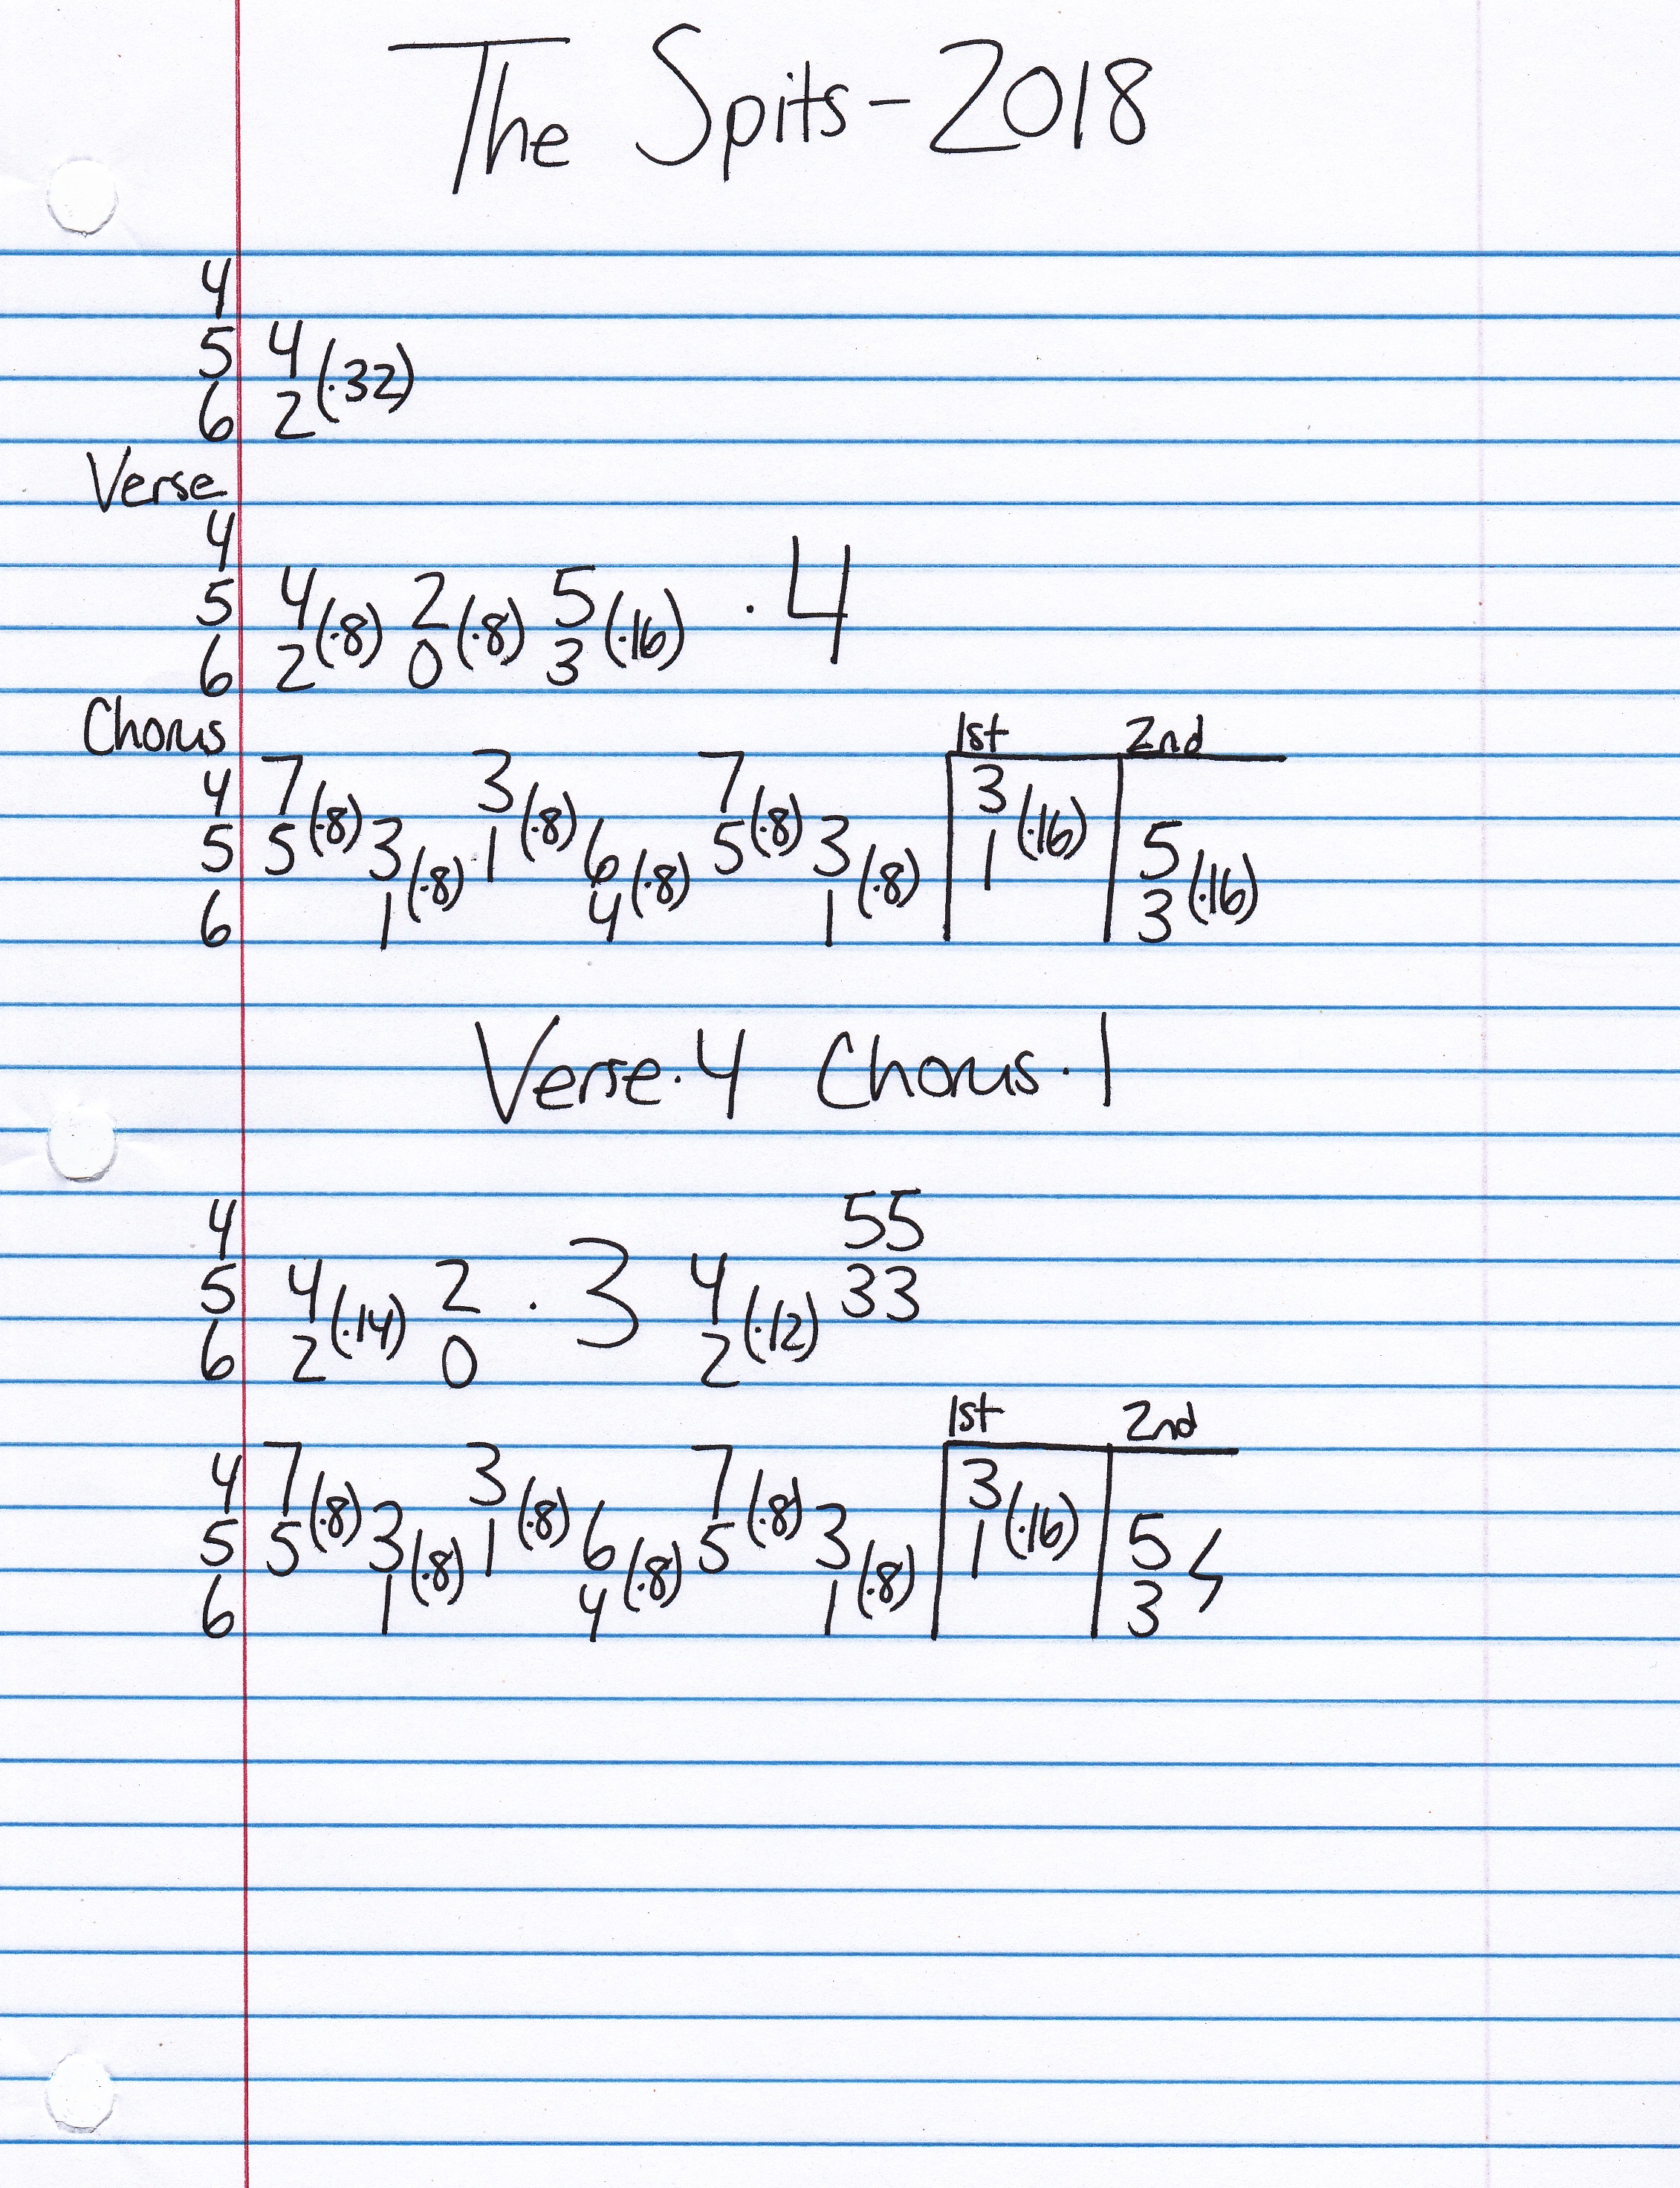 The Spits - 2018
4
5 4 (·32)
6 2
Verse
4
5 4 (·8) 2 (·8) 5 (·16) · 4
6 2 0 3
Chorus 1st 2nd
4 7 (·8) 3 (·8) 7 (·8) 3 (·16)
5 5 3 (·8) 1 6 (·8) 5 3 (·8) 1 5 (·16)
6 1 4 1 3
Verse · 4 Chorus · 1
4 55
5 4 (·14) 2 · 3 4 (·12) 33
6 2 0 2
1st 2nd
4 7 (·8) 3 (·8) 7 (·8) 3 (·16)
5 5 3 (·8) 1 6 (·8) 5 3 (·8) 1 5
6 1 4 1 3